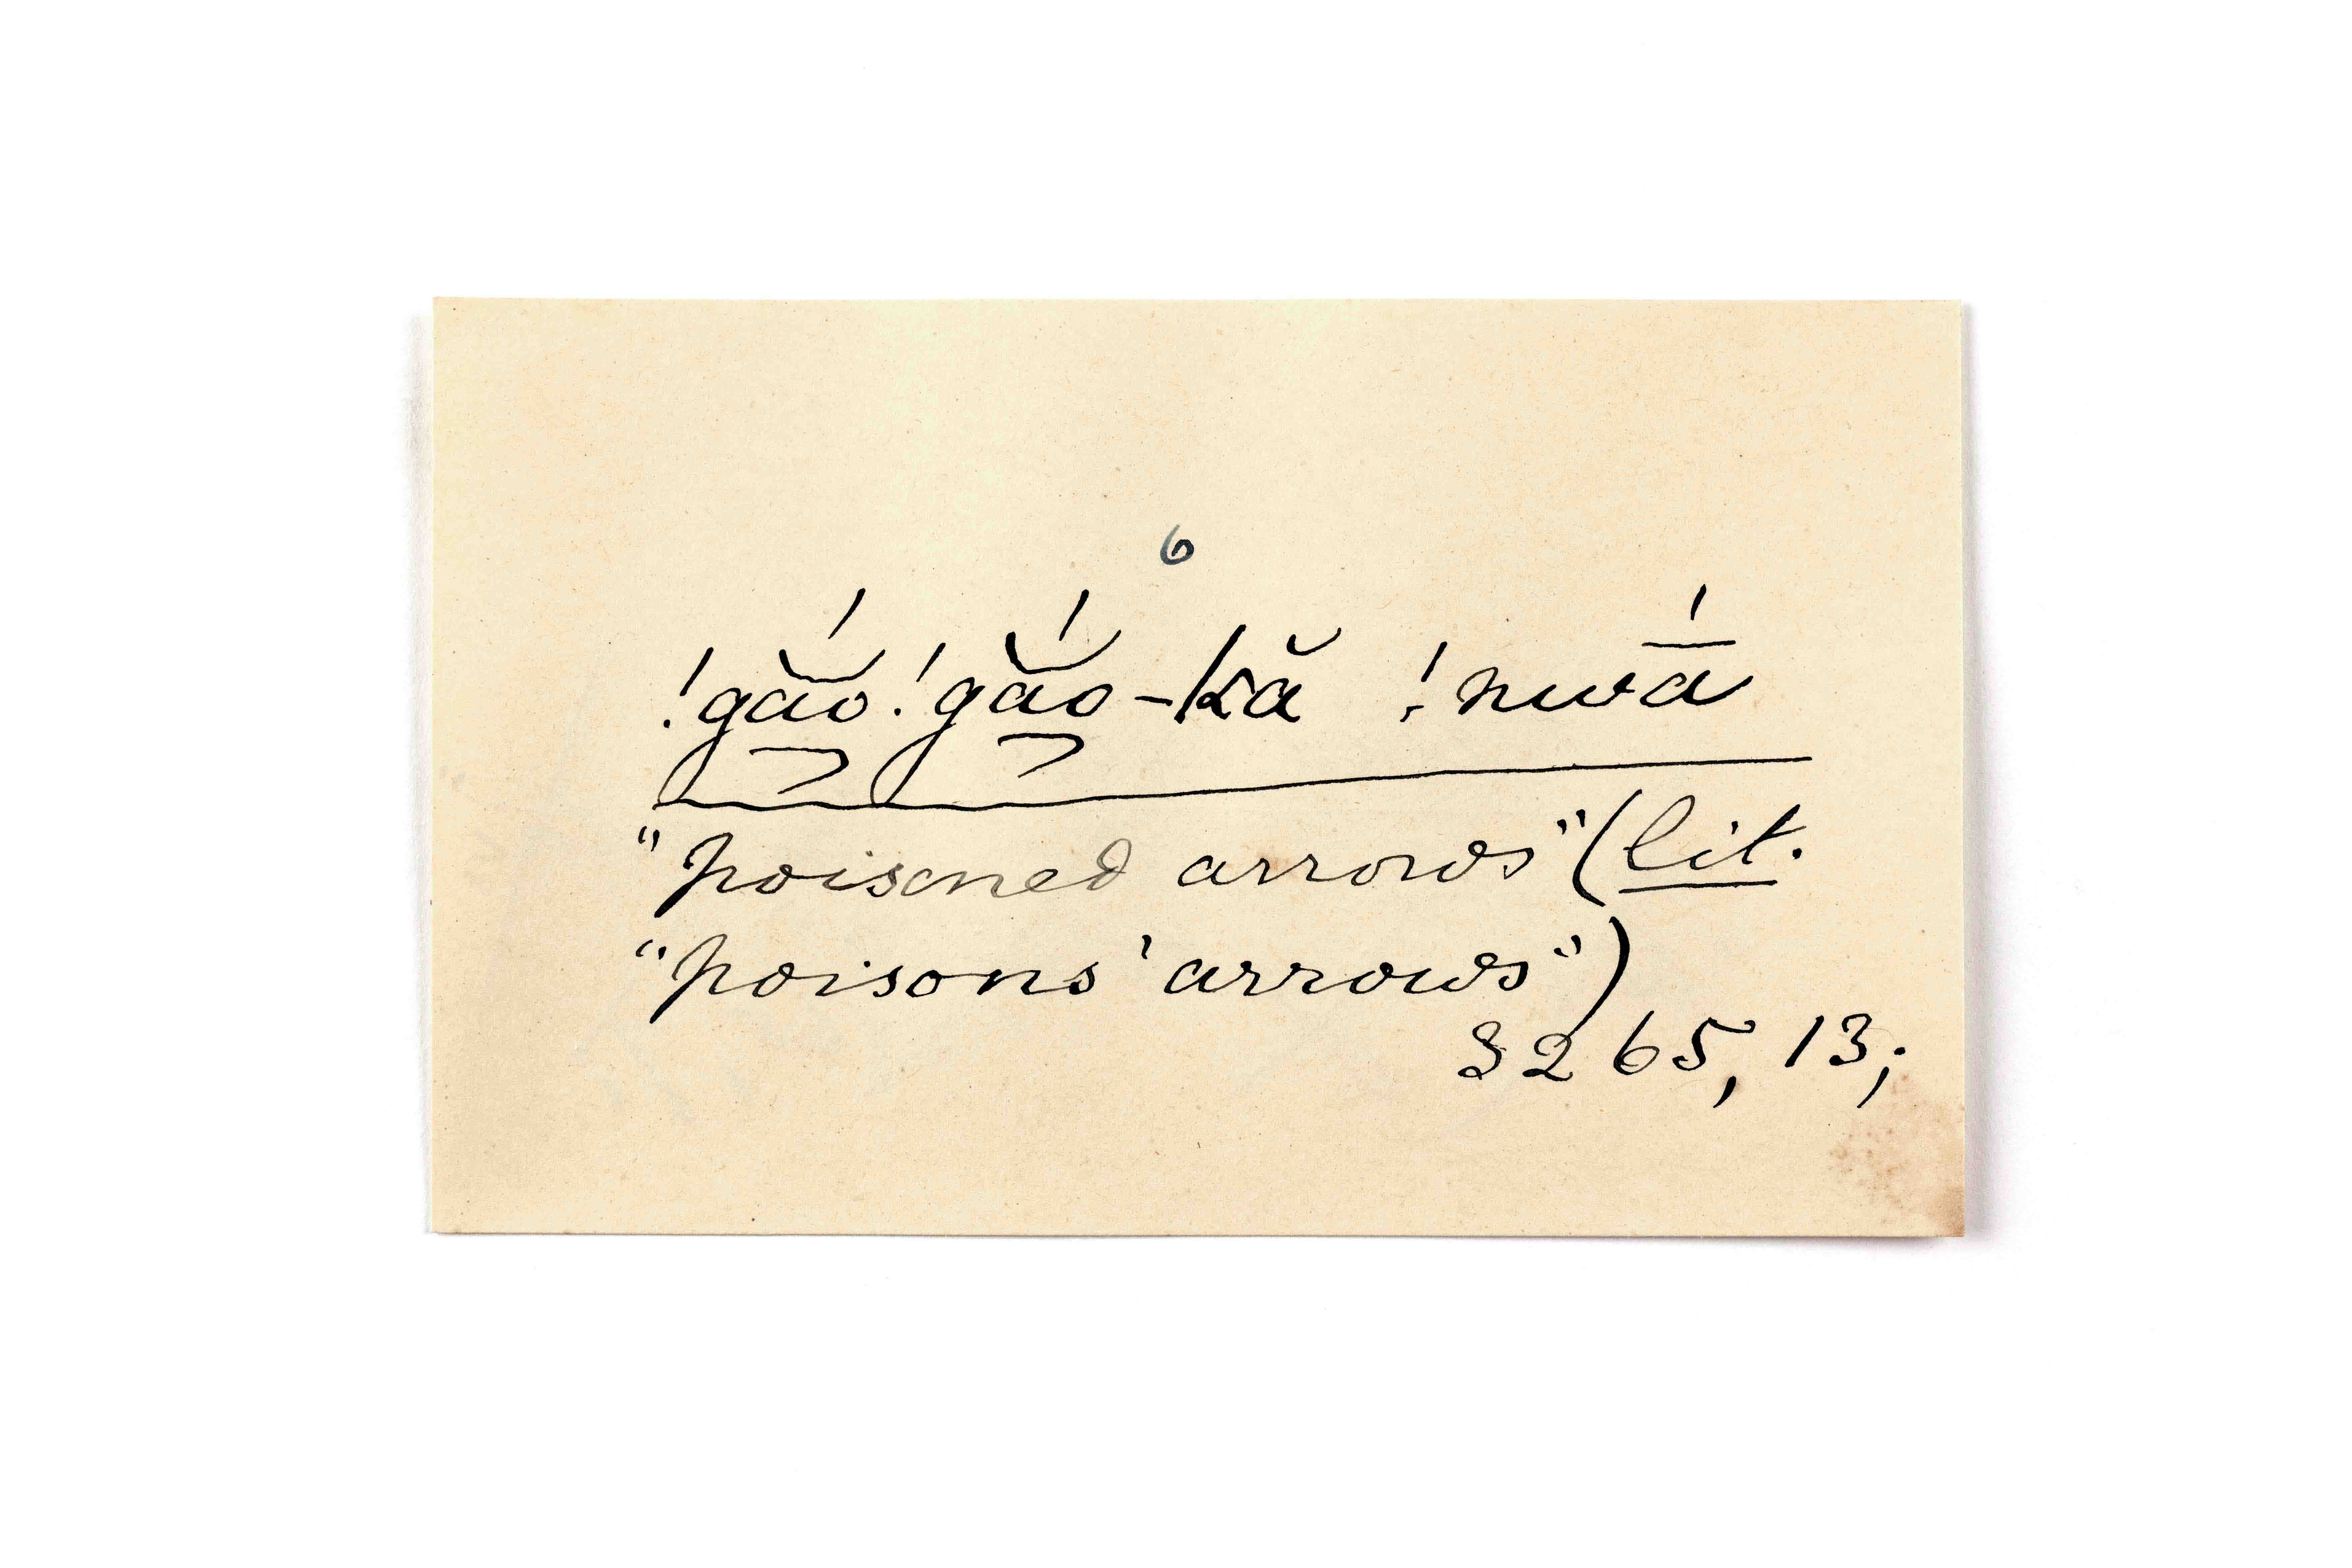 6
!gắo!gắo-kă !nwā́
"poisoned arrows" (lit.
"poisons' arrows")
3265, 13;